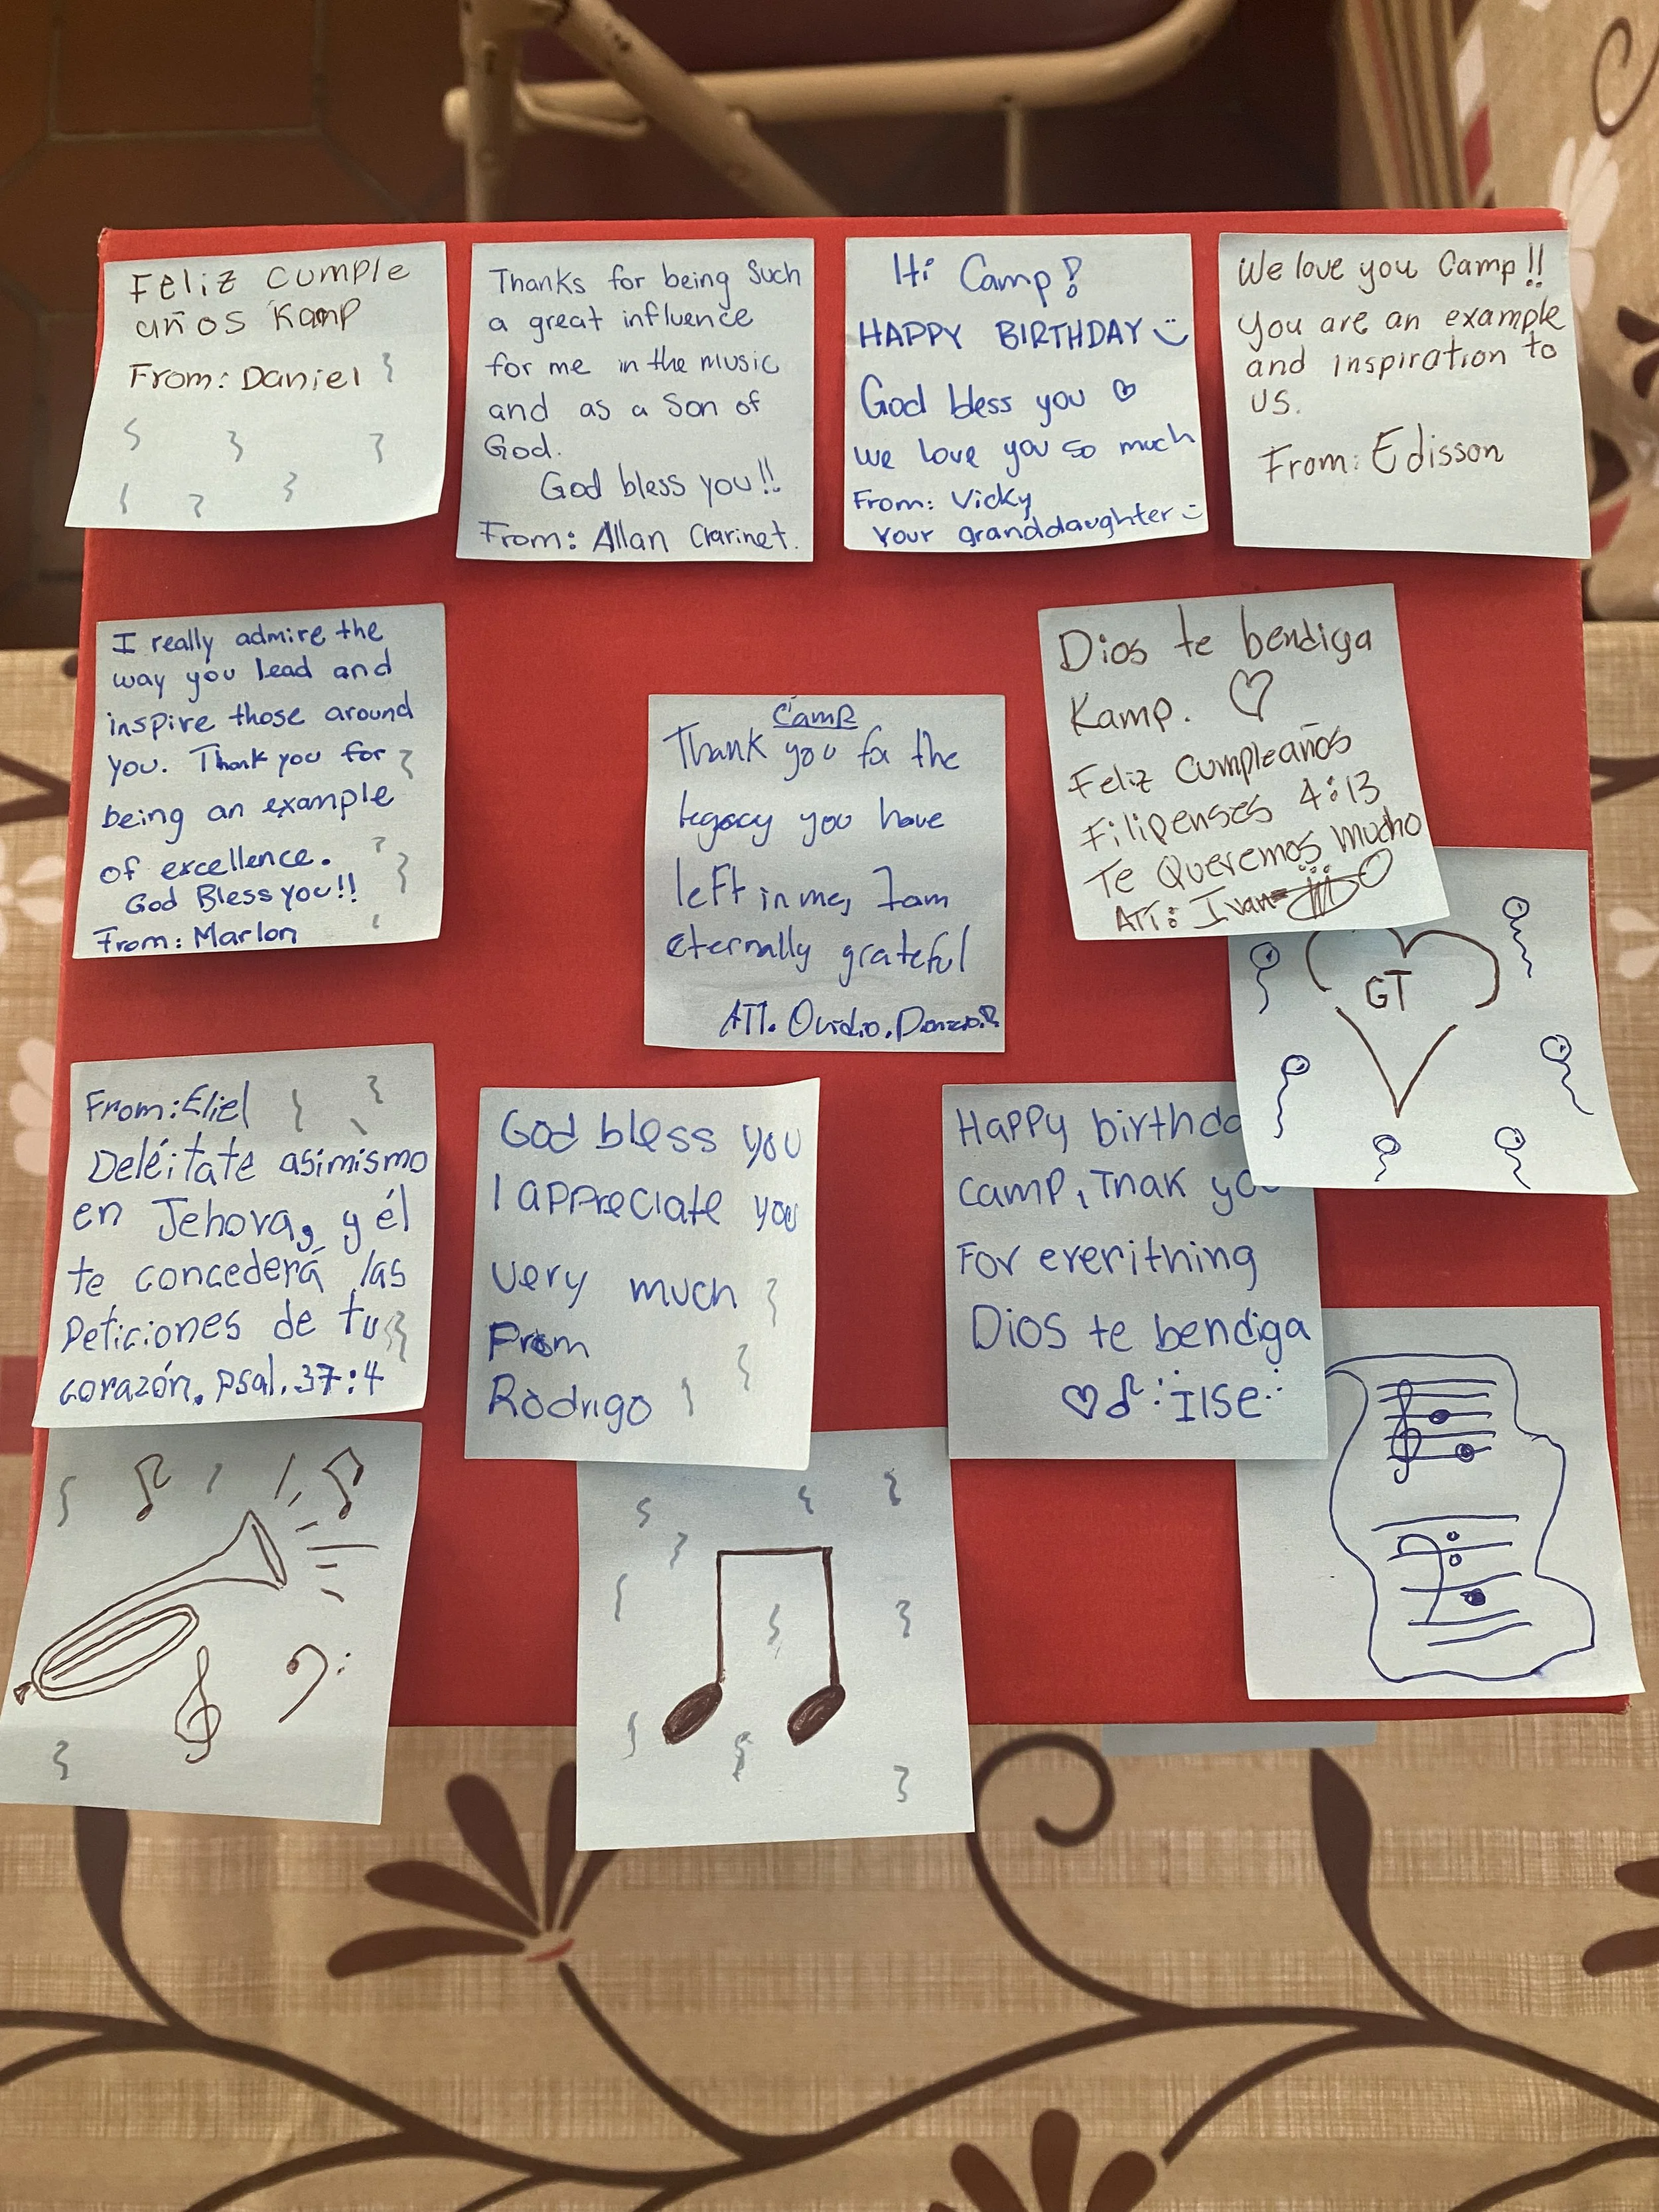 Feliz cumple
años Kamp
From: Daniel
Thanks for being such
a great influence
for me in the music
and as a son of
God.
God bless you!!
From: Allan Clarinet.
Hi Camp!
HAPPY BIRTHDAY
God bless you
we love you so much
From: Vicky
Your granddaughter
We love you Camp!!
You are an example
and inspiration to
us.
From: Edisson
I really admire the
way you lead and
inspire those around
you. Thank you for
being an example
of excellence.
God Bless you!!
From: Marlon
Camp
Thank you for the
legacy you have
left in me, I am
eternally grateful
ATT. Ovidio.
Dios te bendiga
Kamp.
Feliz cumpleaños
Filipenses 4:13
Te Queremos mucho
ATT: Ivan
GT
From: Eliel
Deléitate asimismo
en Jehova, y él
te concederá las
peticiones de tu
corazón. psal. 37:4
God bless you
I appreciate you
very much
From
Rodrigo
Happy birthda
camp, Tnak yo
For ererithing
Dios te bendiga
Ilse